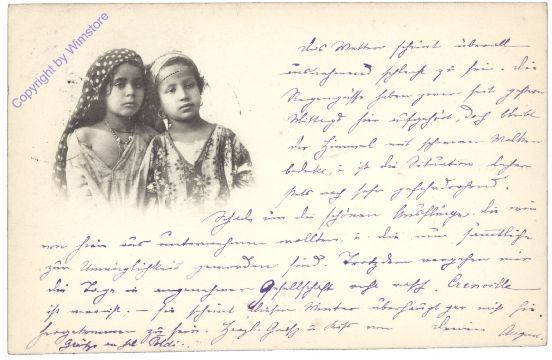 Copyright by Wimstore
Das Wetter scheint überall
ausnehmend schlecht zu sein. die
Regengüsse haben zwar seit gestern
Mittags hier aufgehört, doch bleibt
der Himmel mit schweren Wolken
bedeckt, u. ist die Situation daher
stets noch sehr gefahrdrohend.
Schade um die schönen Ausflüge, die wir
von hier aus unternehmen wollten, u. die nun sämtliche
zur Unmöglichkeit geworden sind. Trotzdem vergehen mir
die Tage in angenehmer Gesellschaft recht rasch. Crenville
ist verreist. – Sie scheint diesen Winter überhaupt gar nicht hier
hergekommen zu sein. Herzl. Gruß u. Kuß von Deinem
August.
Grüße an Poldi.